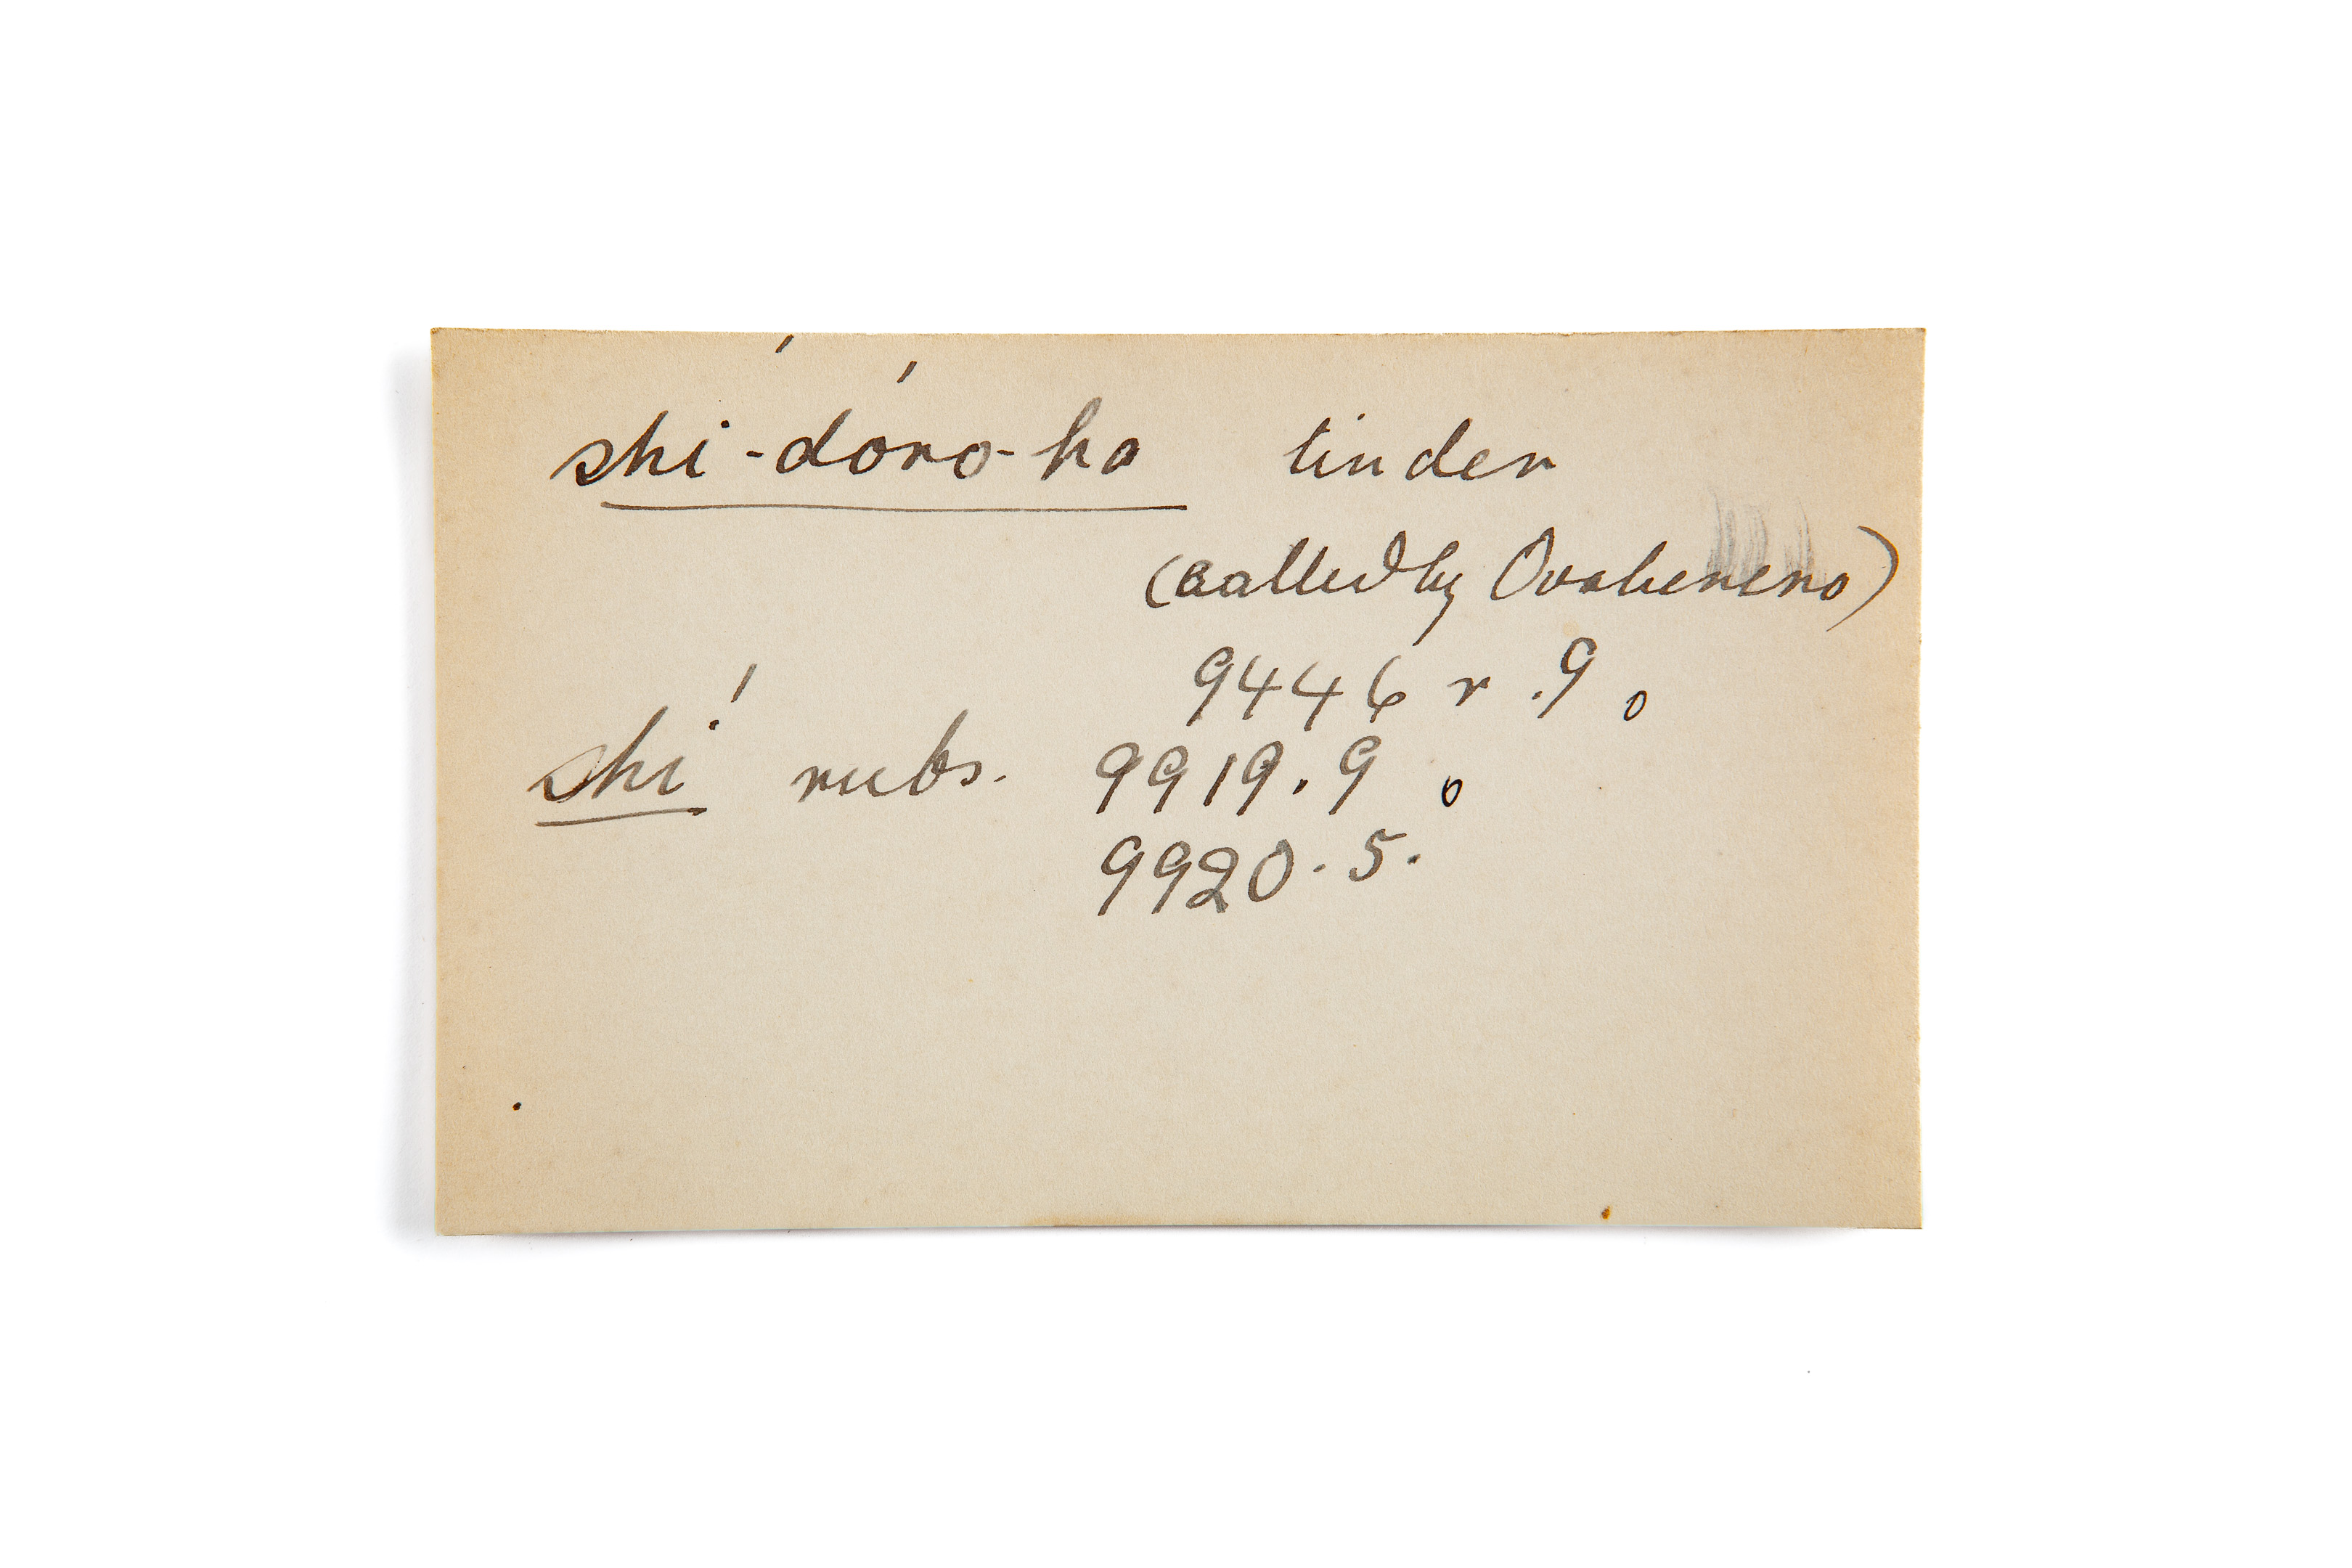 shi-dóro-ha tinder
(called by Ovaherero)
9446 r. 9.
shí rubs. 9919. 9.
9920. 5.